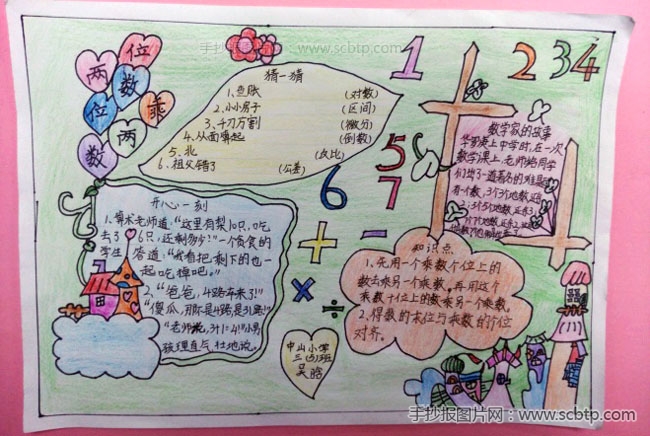 手抄报图片网：www.scbtp.com
两
位
数
位
乘
两
数
猜一猜
1、查账 (对数)
2、小小房子 (区间)
3、千刀万割 (微分)
4、从后算起 (倒数)
5、北 (反比)
6、祖父错了 (公差)
1
2 3 4
5
6
7
+ -
× ÷
数学家的故事
华罗庚上中学时，在一次
数学课上，老师给同学
们出了一道著名的难题
有一个数，3个3个地数，还余
2；5个5个地数，还余3；
7个7个地数，还余2，
开心一刻
1、算术老师道：“这里有梨10只，吃
去了6只，还剩多少？”一个贪食的
学生答道：“我看把剩下的也一
起吃掉吧。”
2、“爸爸，4路车来了！”
“傻瓜，那不是4路，是31路！”
“老师说，3+1=4！”小男
孩理直气壮地说。
知识点
1、先用一个乘数个位上的
数去乘另一个乘数，再用这个
乘数十位上的数乘另一个乘数。
2、得数的末位与乘数的个位
对齐。
中山小学
三(5)班
吴晗
手抄报图片网：www.scbtp.com